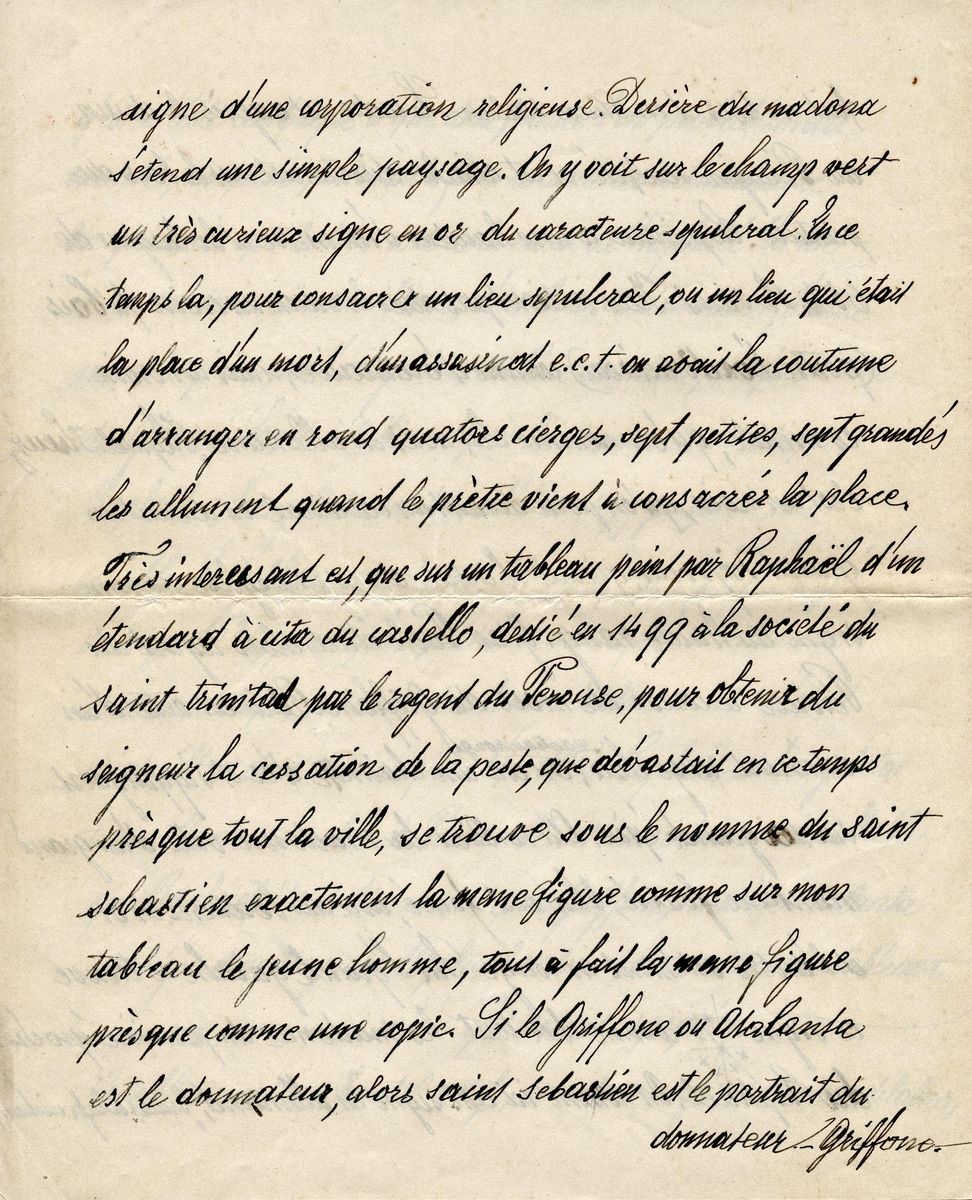 signe d'une corporation religieuse. Derière du madona
s'étend une simple paysage. On y voit sur le champ vert
un très curieux signe en or du caracteure sepulcral. En ce
temps la, pour consacrer un lieu sepulcral, ou un lieu qui était
la place d'un mort, d'un assasinat e.c.t. on avait la coutume
d'arranger en rond quators cierges, sept petites, sept grandés
les allument quand le prètre vient à consacrér la place.
Très interessant est, que sur un tableau peint par Raphaël d'un
étendard à cita du castello, dedié en 1499 à la société du
saint trinitad par le regent du Perouse, pour obtenir du
seigneur la cessation de la peste, que dévastait en ce temps
prèsque tout la ville, se trouve sous le nomme du saint
sebastien exactement la meme figure comme sur mon
tableau le jeune homme, tout à fait la meme figure
prèsque comme une copie. Si le Griffone ou Atalanta
est le donnateur, alors saint sebastién est le portrait du
donnateur - Griffone.